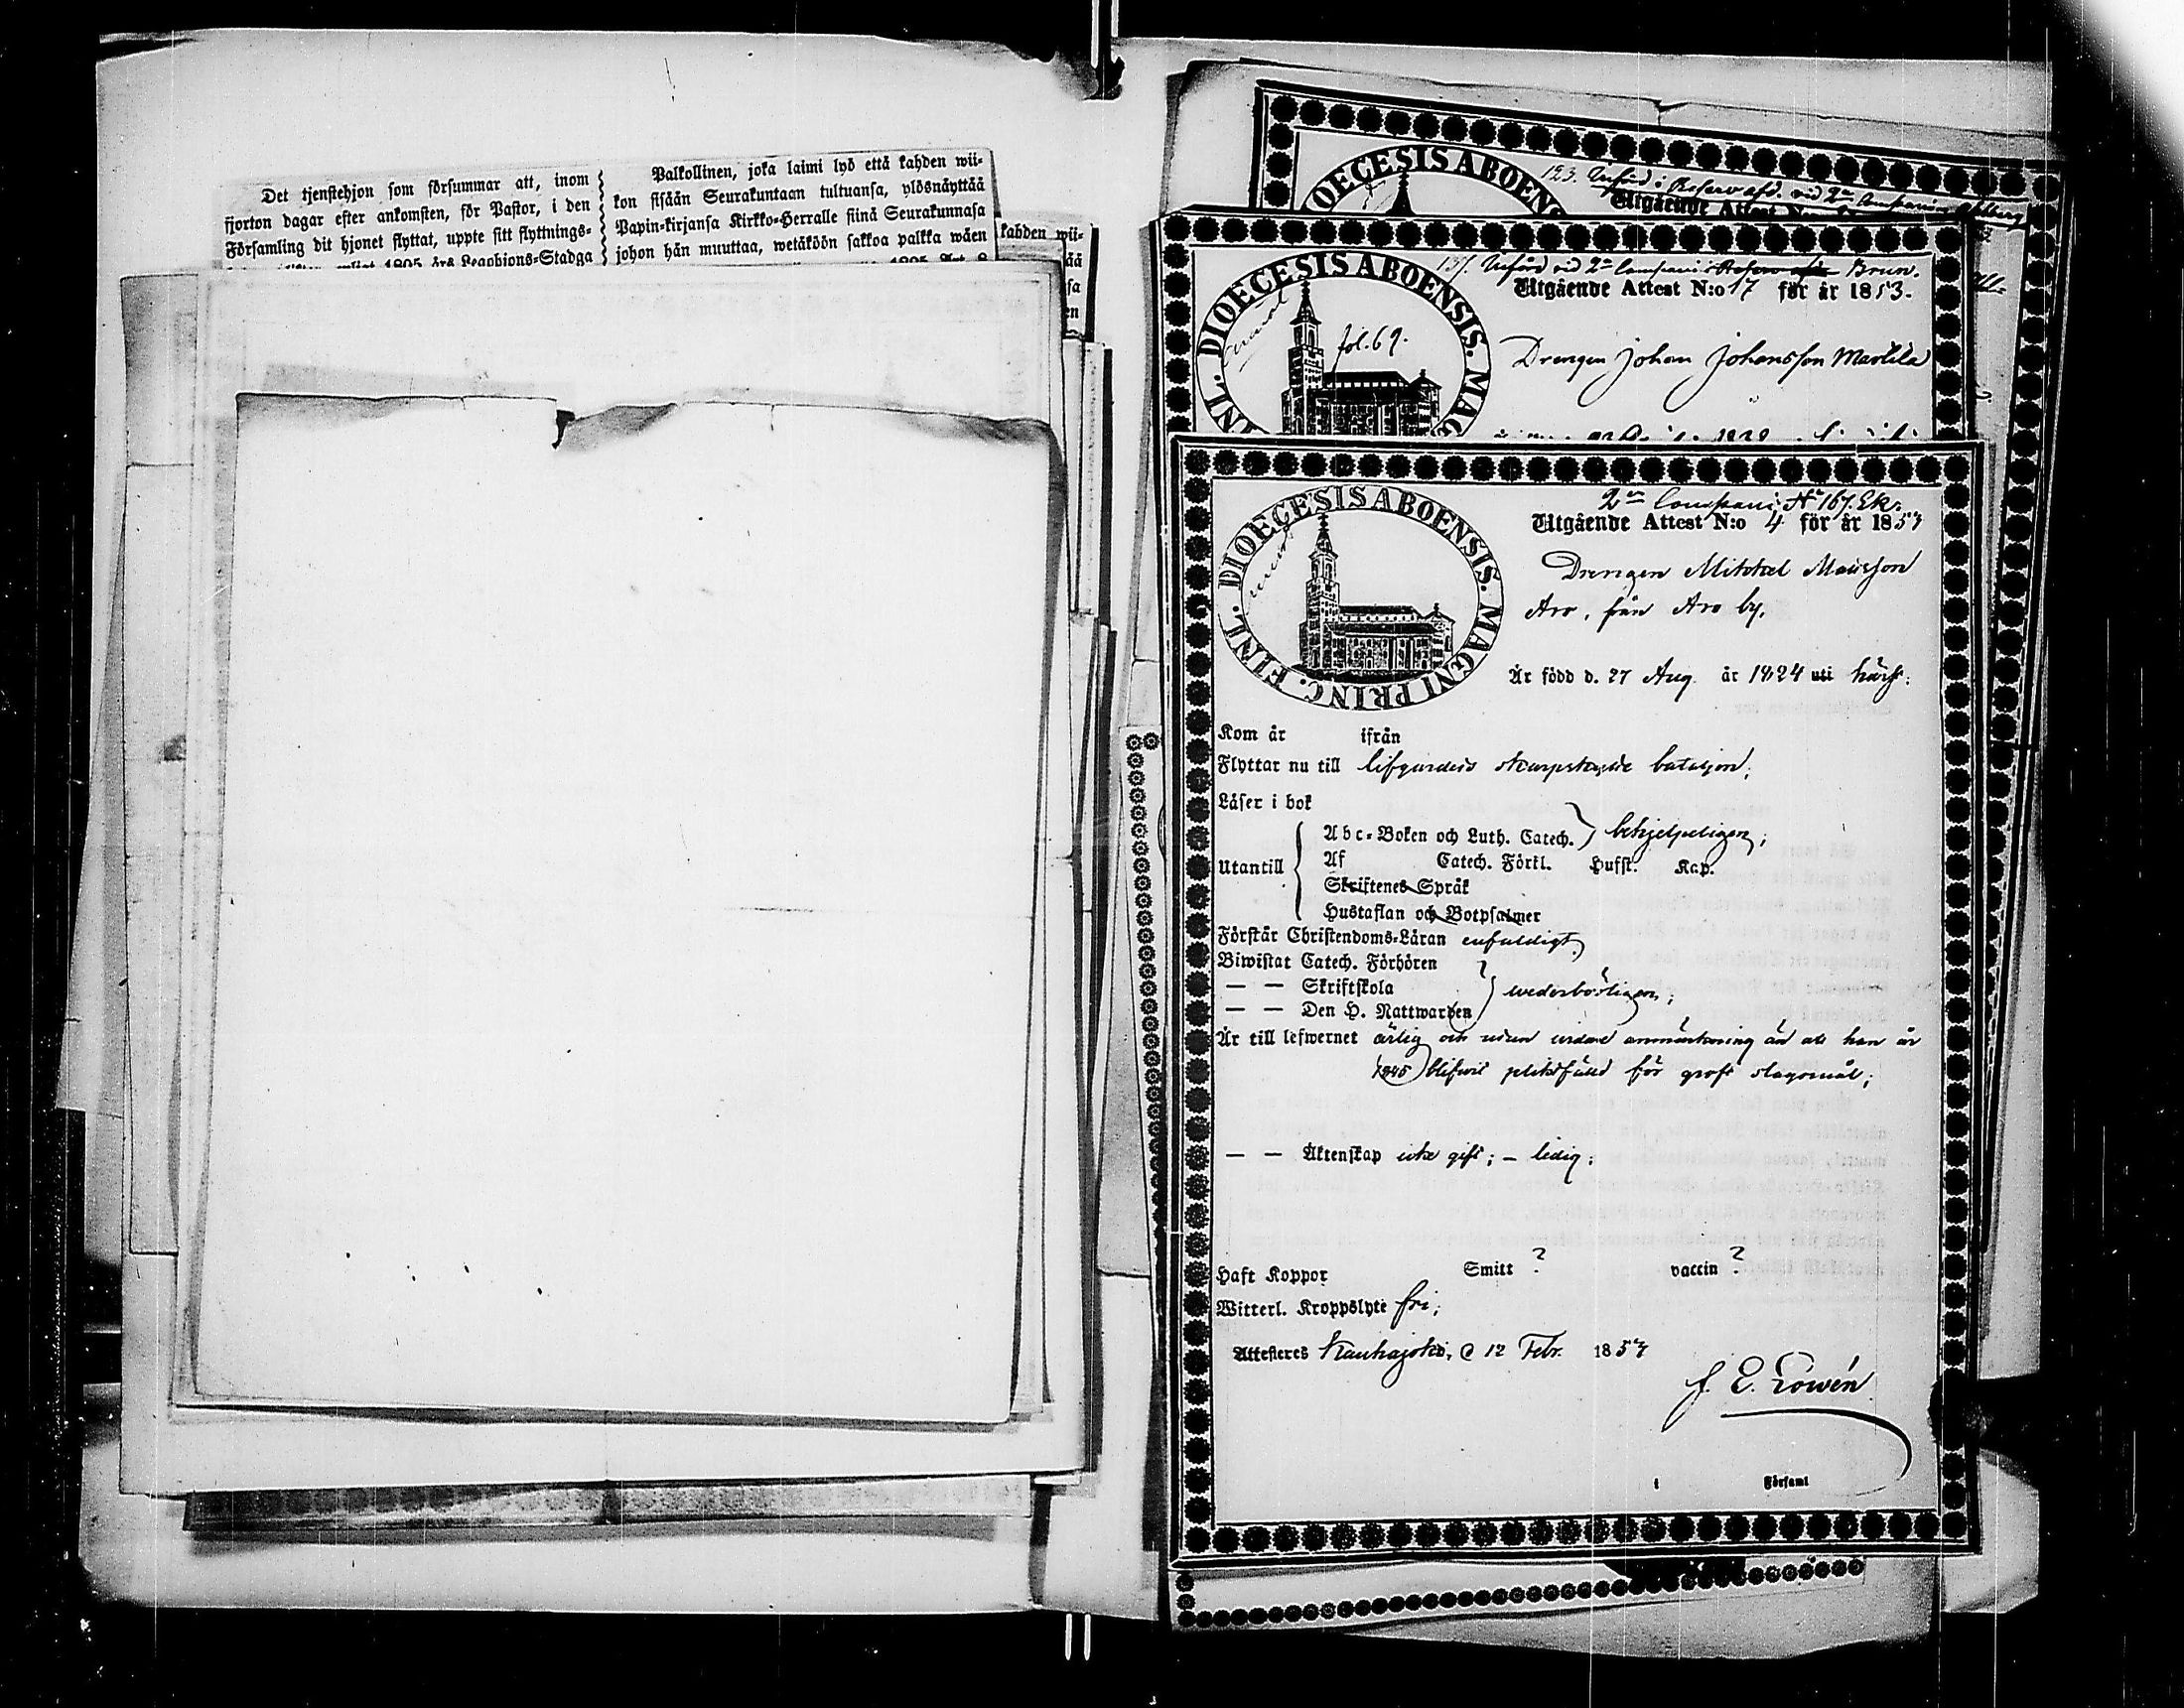 Det tjenstehjon som försummar att, inom
fjorton dagar efter ankomsten, för Pastor, i den
Församling dit hjonet flyttat, uppte sitt flyttnings-
1805 års Legohjons-Stadga
Palkollinen, joka laimi lyö että kahden wii-
kon sisään Seurakuntaan tultuansa, ylösnäyttää
Papin-kirjansa Kirkko-Herralle siinä Seurakunnasa
johon hän muuttaa, wetäköön sakkoa palkka wäen
kahden wii-
ää
sa
en
DIOECESIS ABOENS
123. Införd i Reserv afd. vid 2n Compani
Utgående Attest
DIOECESIS ABOENSIS. MAG NL.
Införd vid 2n Compani Brun.
Utgående Attest N:o 17 för år 1853.
fol. 69.
Drengen Johan Johansson Marttila
DIOECESIS ABOENSIS. MAGNI PRINC. FINL.
2n Compani N 167. Ek.
Utgående Attest N:o 4 för år 1854
Drengen Mikkel Maiison
Aro, från Aro by,
Är född d. 27 Aug. år 1824 uti härst:
Kom år ifrån
Flyttar nu till lifgardets skarpskytte bataljon;
Läser i bok
Utantill
Abc-Boken och Luth. Catech. behjelpeligen;
Af Catech. Förkl. Hufst. Kap.
Skriftenes Språk
Hustaflan och Botpsalmer
Förstår Christendoms-Läran enfaldigt
Biwistat Catech. Förhören
— — Skriftskola wederbörligen;
— — Den H. Nattwarden
Är till lefwernet ärlig och utan vidare anmärkning än att han är
1845 blifvit pliktfälld för groft slagsmål;
— — Äktenskap icke gift; – ledig;
Haft Koppor Smitt ? vaccin ?
Witterl. Kroppslyte fri;
Attesteres Kauhajoki, d 12 Febr. 1854
f. E. Löwén
i Församl